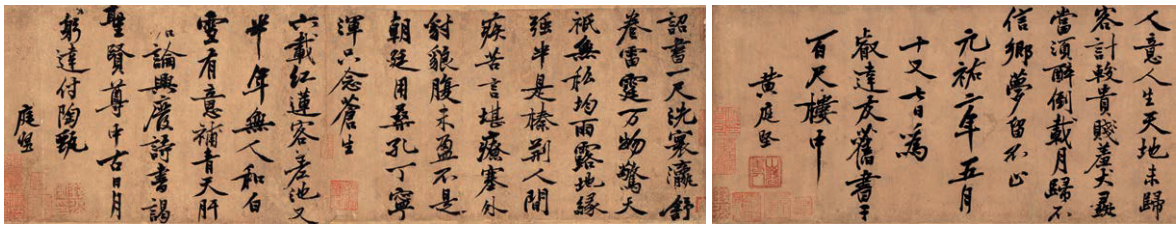 詔書一尺洗寰瀛舒
卷雷霆万物驚天
祇無私均雨露地緣
强半是榛荆人間
疾苦言堪療塞外
豺狼腹未盈不是
朝廷用桑孔丁寧
渾只念蒼生
六載紅蓮客差池又
半年無人和白
雪有意補青天肝
論興廢詩書謁
聖賢尊中古日月
窮達付陶甄
庭堅
人意人生天地未歸
客計較貴賤
當須醉倒載月歸不
信鄉夢留不止
元祐二年五月
十又七日為
叡達友舊書于
百尺樓中
黃庭堅